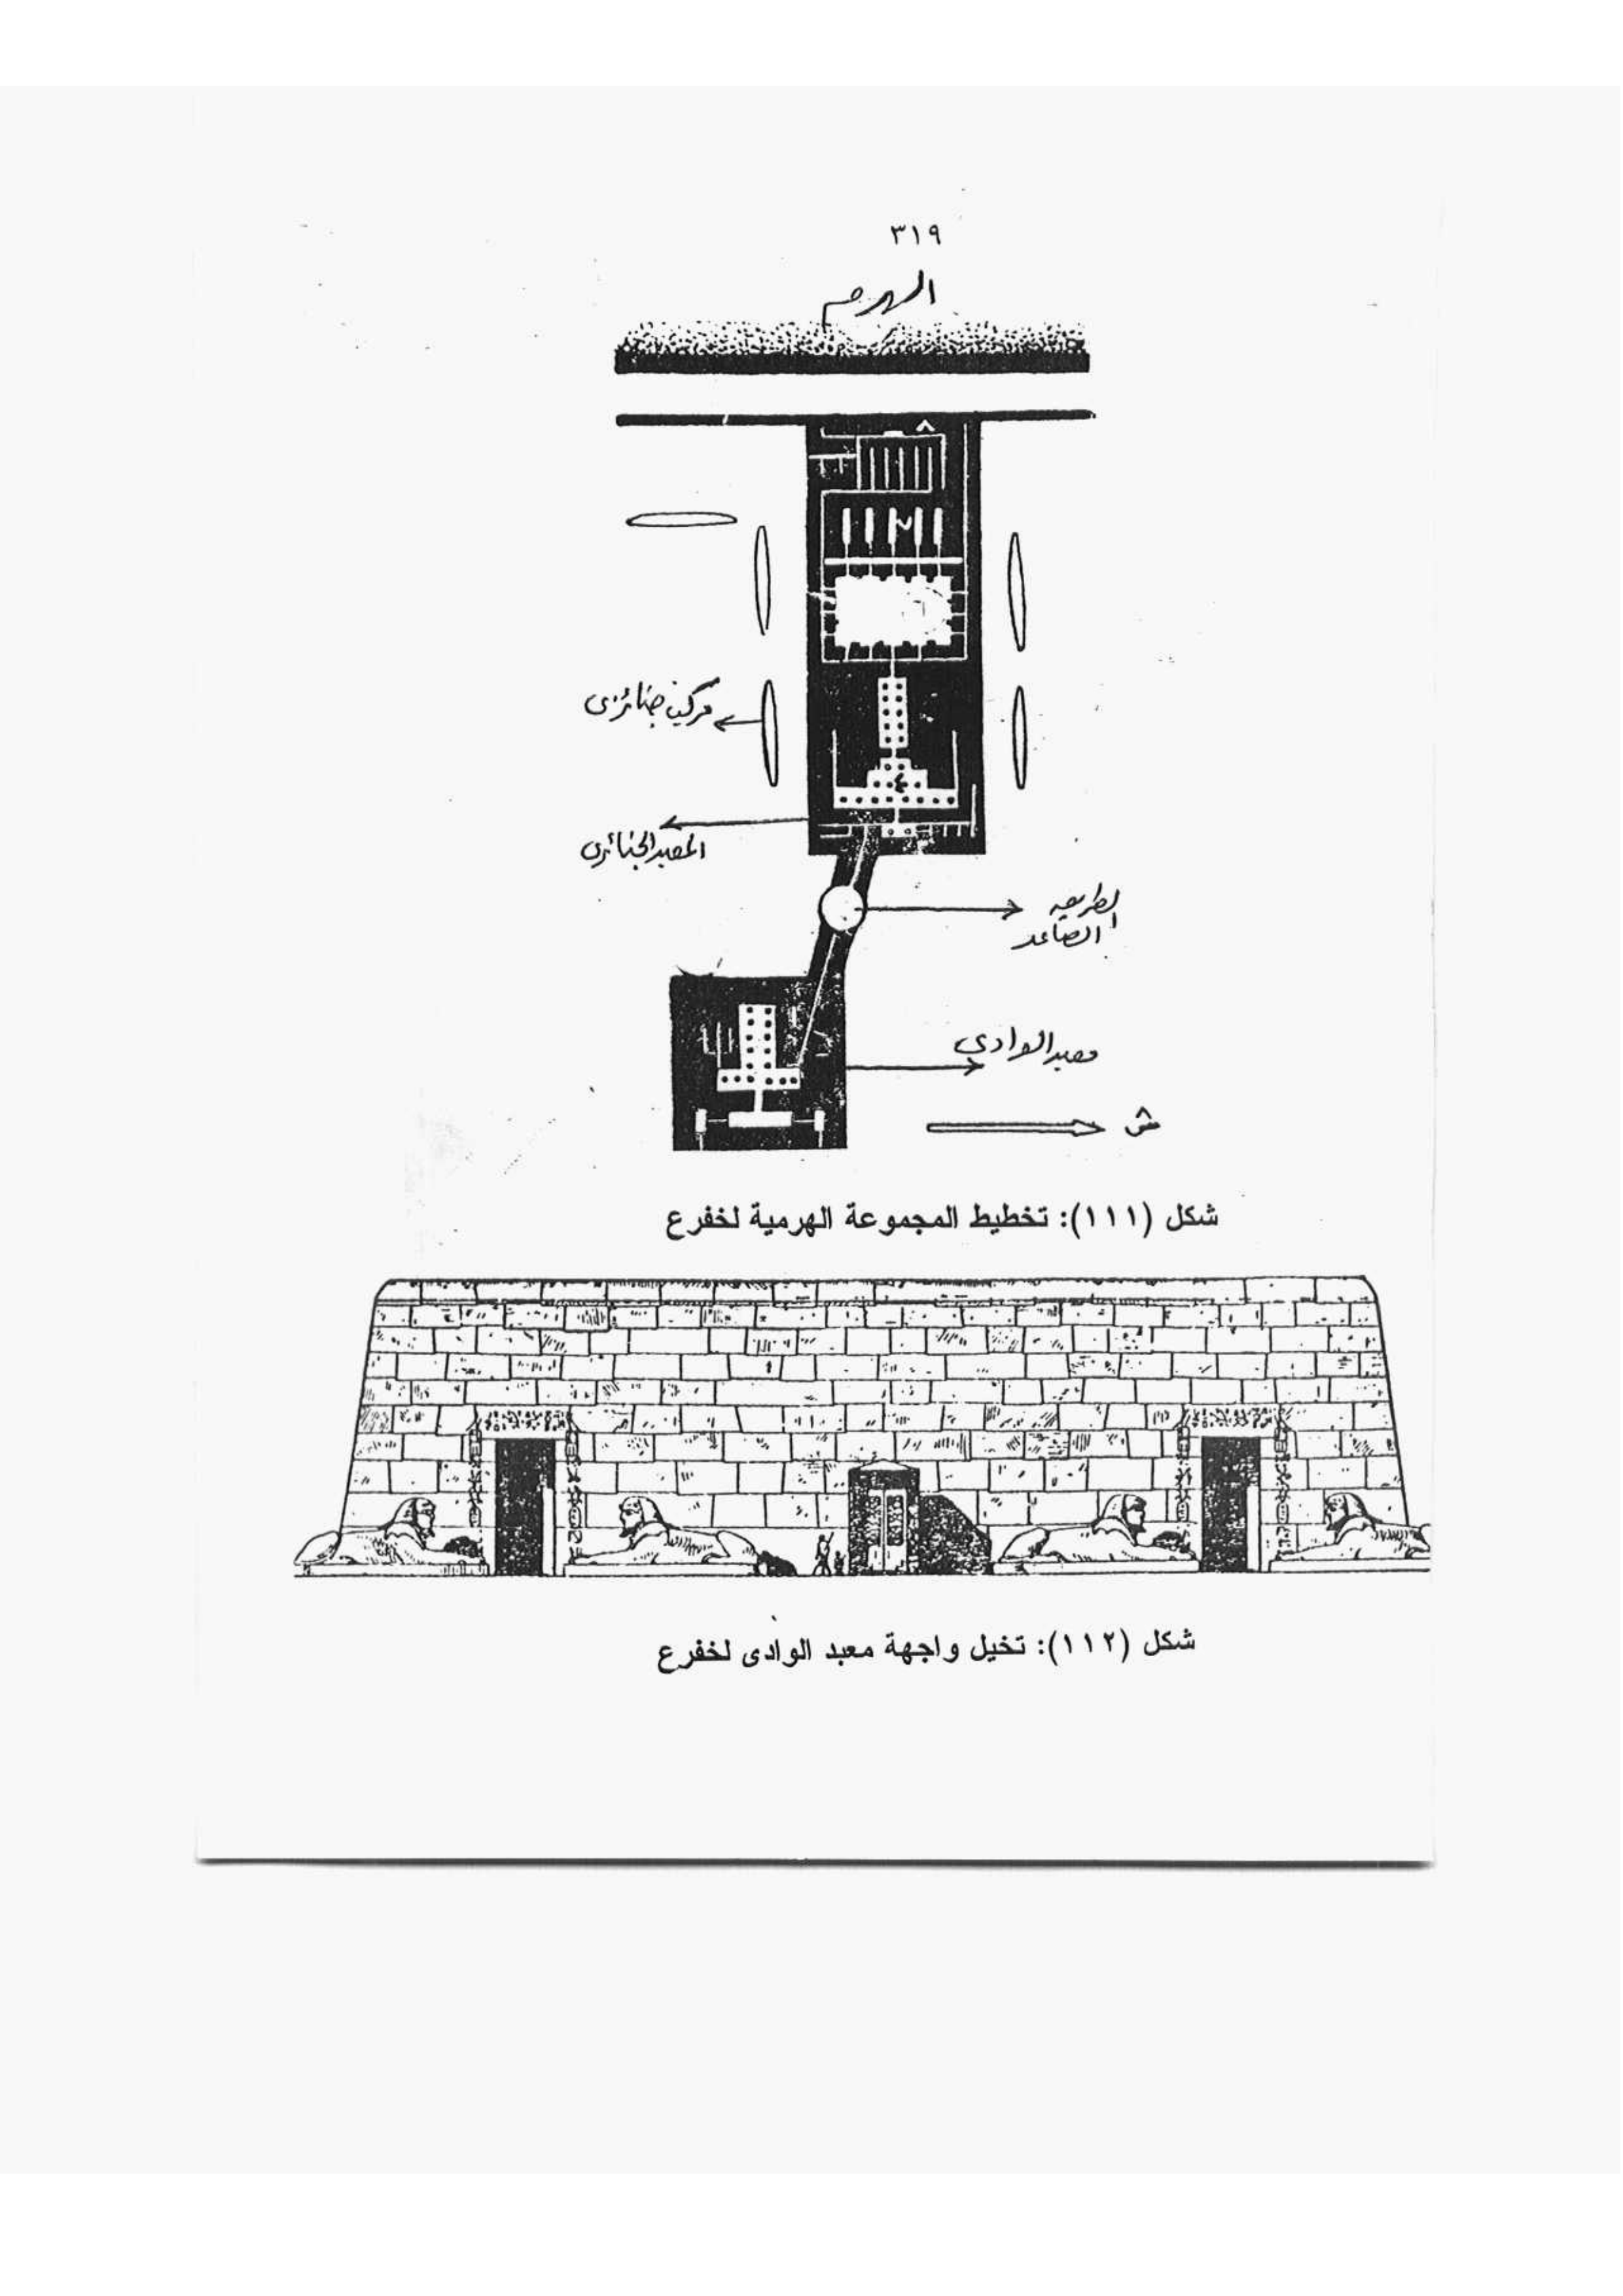 ٣١٩
الهرم
مركب جنائزى
المعبد الجنائزى
الطريق
الصاعد
معبد الوادى
ش
شكل (١١١): تخطيط المجموعة الهرمية لخفرع
شكل (١١٢): تخيل واجهة معبد الوادى لخفرع